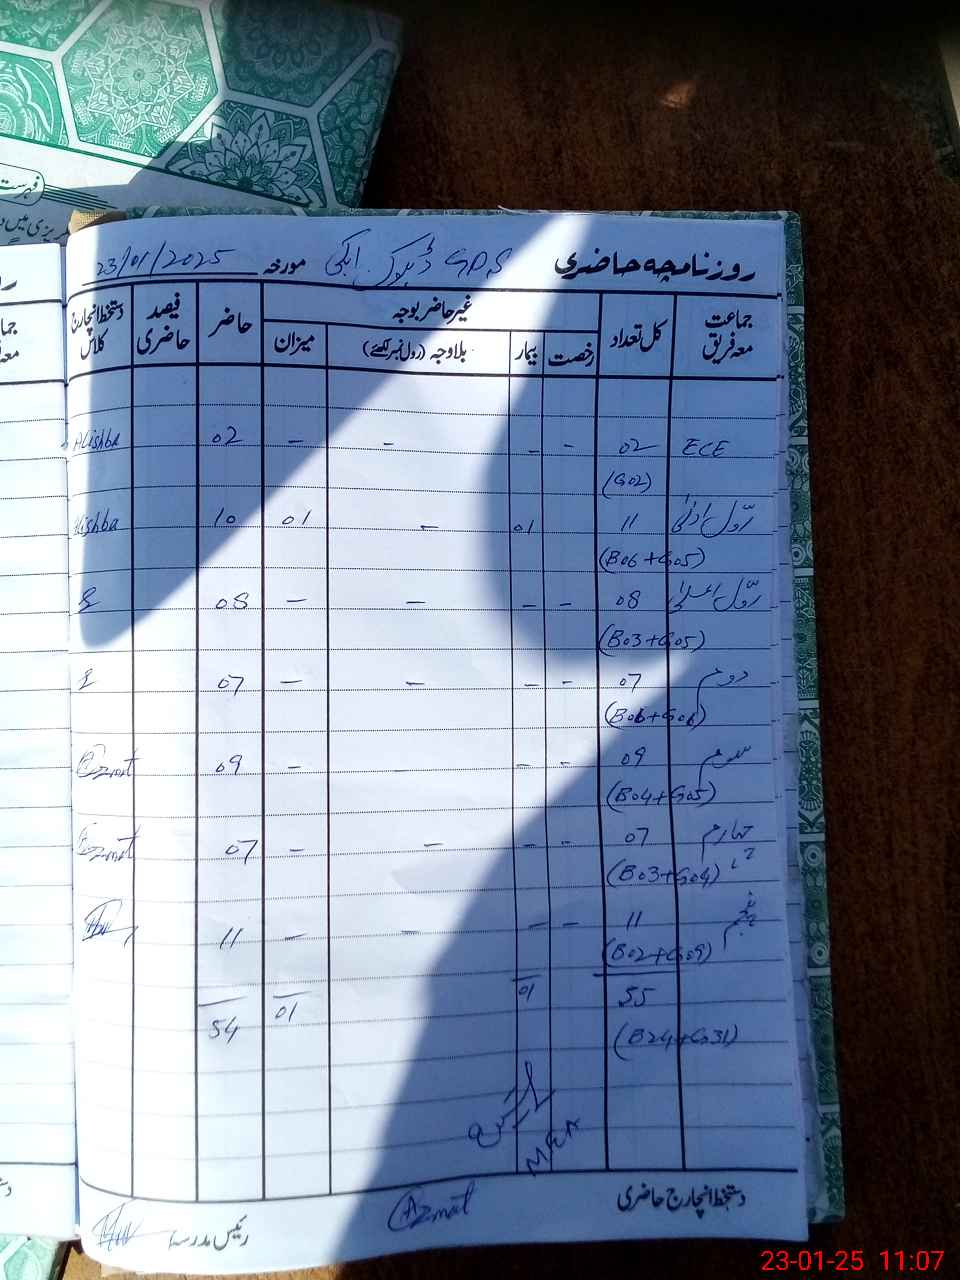 فہرست
روزنامچہ حاضری GPS ڈھوک مورخہ 23/01/2025
جماعت معہ فریق
کل تعداد
غیر حاضر بوجہ
رخصت
بیمار
بلاوجہ (رول نمبر لکھئے)
میزان
حاضر
فیصد حاضری
دستخط انچارج کلاس
ECE 02 - - - - 02 Alishba
(G02)
اوّل ادنیٰ 11 01 - 01 10 Alishba
(B06+G05)
اوّل اعلیٰ 08 - - - - 08
(B03+G05)
دوم 07 - - - - 07
سوم 09 - - - - 09 Azmat
(B04+G05)
چہارم 07 - - - - 07 Azmat
(B03+G04)
پنجم 11 - - - - 11
(B02+G09)
55 01 01 54
(B24+G31)
MEA
دستخط انچارج حاضری Azmat رئیس مدرسہ
23-01-25 11:07